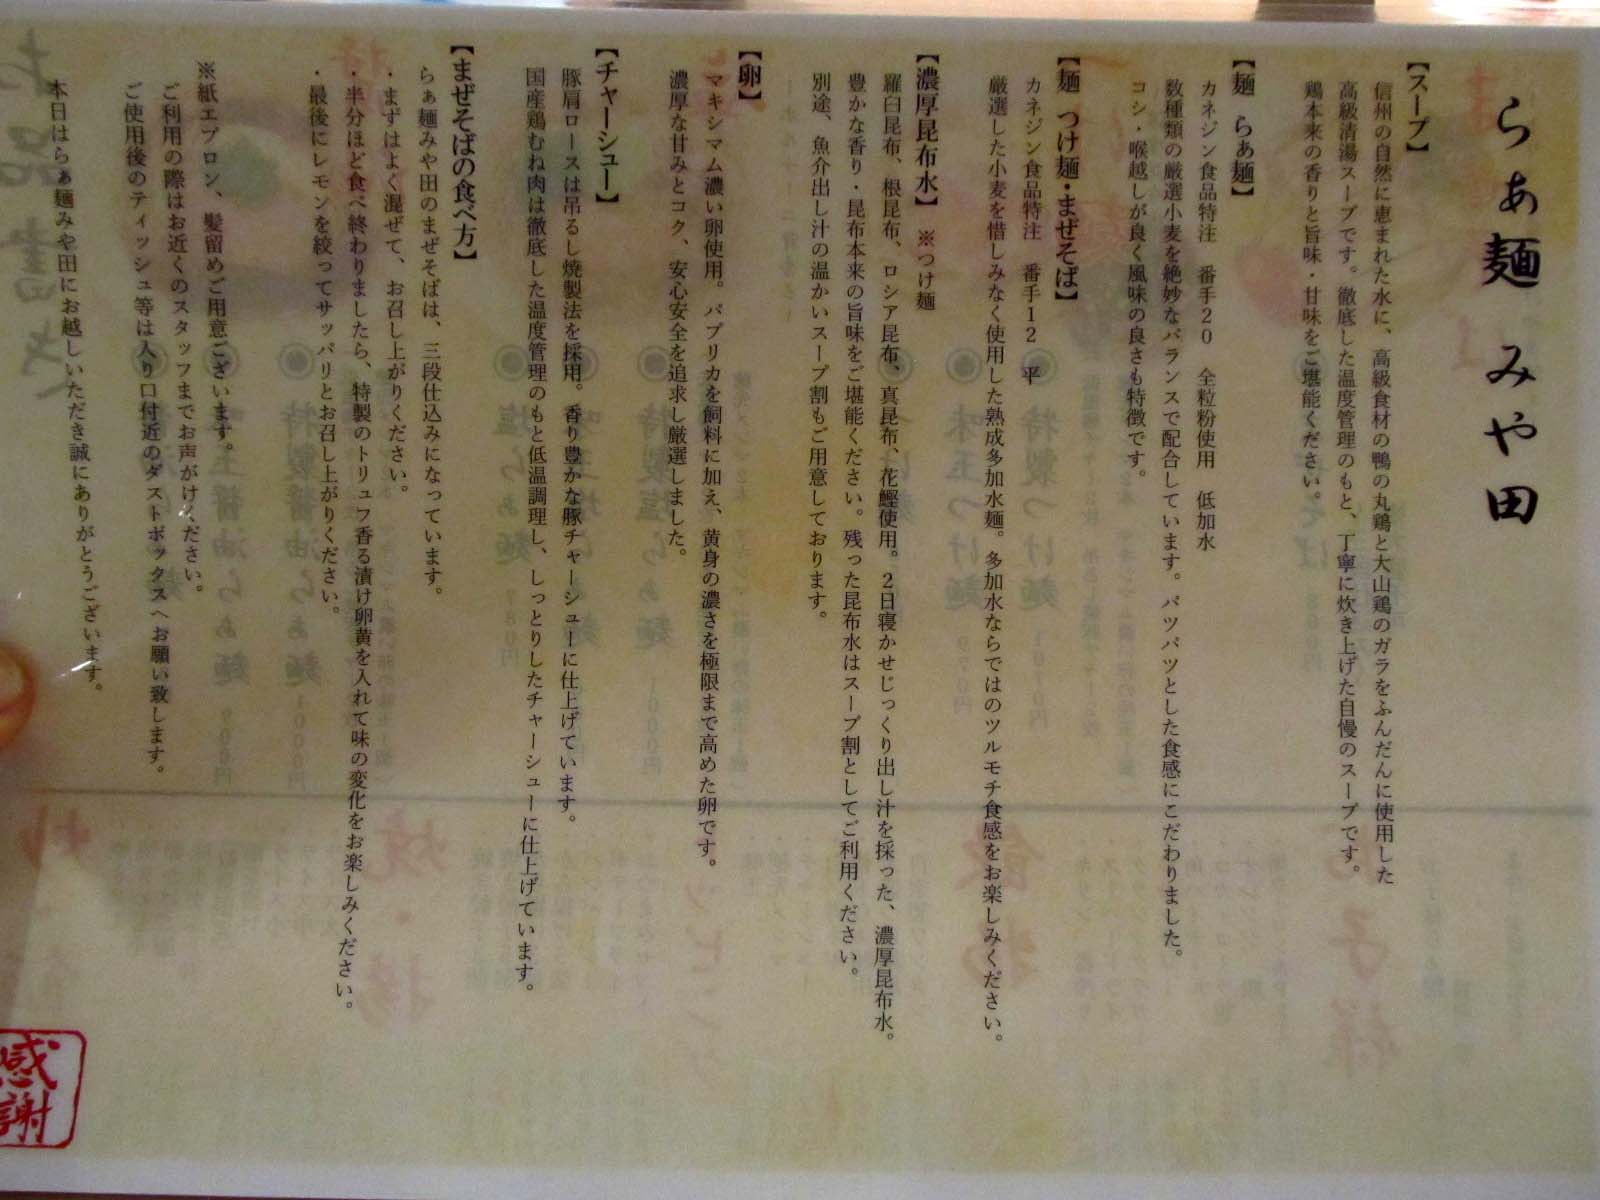 らぁ麺 みや田
【スープ】
信州の自然に恵まれた水に、高級食材の鴨の丸鶏と大山鶏のガラをふんだんに使用した
高級清湯スープです。徹底した温度管理のもと、丁寧に炊き上げた自慢のスープです。
鶏本来の香りと旨味・甘味をご堪能ください。
【麺 らぁ麺】
カネジン食品特注 番手20 全粒粉使用 低加水
数種類の厳選小麦を絶妙なバランスで配合しています。パツパツとした食感にこだわりました。
コシ・喉越しが良く風味の良さも特徴です。
【麺 つけ麺・まぜそば】
カネジン食品特注 番手12 平
厳選した小麦を惜しみなく使用した熟成多加水麺。多加水ならではのツルモチ食感をお楽しみください。
【濃厚昆布水】 ※つけ麺
羅臼昆布、根昆布、ロシア昆布、真昆布、花鰹使用。2日寝かせじっくり出し汁を採った、濃厚昆布水。
豊かな香り・昆布本来の旨味をご堪能ください。残った昆布水はスープ割としてご利用ください。
別途、魚介出し汁の温かいスープ割もご用意しております。
【卵】
マキシマム濃い卵使用。パプリカを飼料に加え、黄身の濃さを極限まで高めた卵です。
濃厚な甘みとコク、安心安全を追求し厳選しました。
【チャーシュー】
豚肩ロースは吊るし焼製法を採用。香り豊かな豚チャーシューに仕上げています。
国産鶏むね肉は徹底した温度管理のもと低温調理し、しっとりしたチャーシューに仕上げています。
【まぜそばの食べ方】
らぁ麺みや田のまぜそばは、三段仕込みになっています。
・まずはよく混ぜて、お召し上がりください。
・半分ほど食べ終わりましたら、特製のトリュフ香る漬け卵黄を入れて味の変化をお楽しみください。
・最後にレモンを絞ってサッパリとお召し上がりください。
※紙エプロン、髪留めご用意ございます。
ご利用の際はお近くのスタッフまでお声がけください。
ご使用後のティッシュ等は入り口付近のダストボックスへお願い致します。
本日はらぁ麺みや田にお越しいただき誠にありがとうございます。
感謝